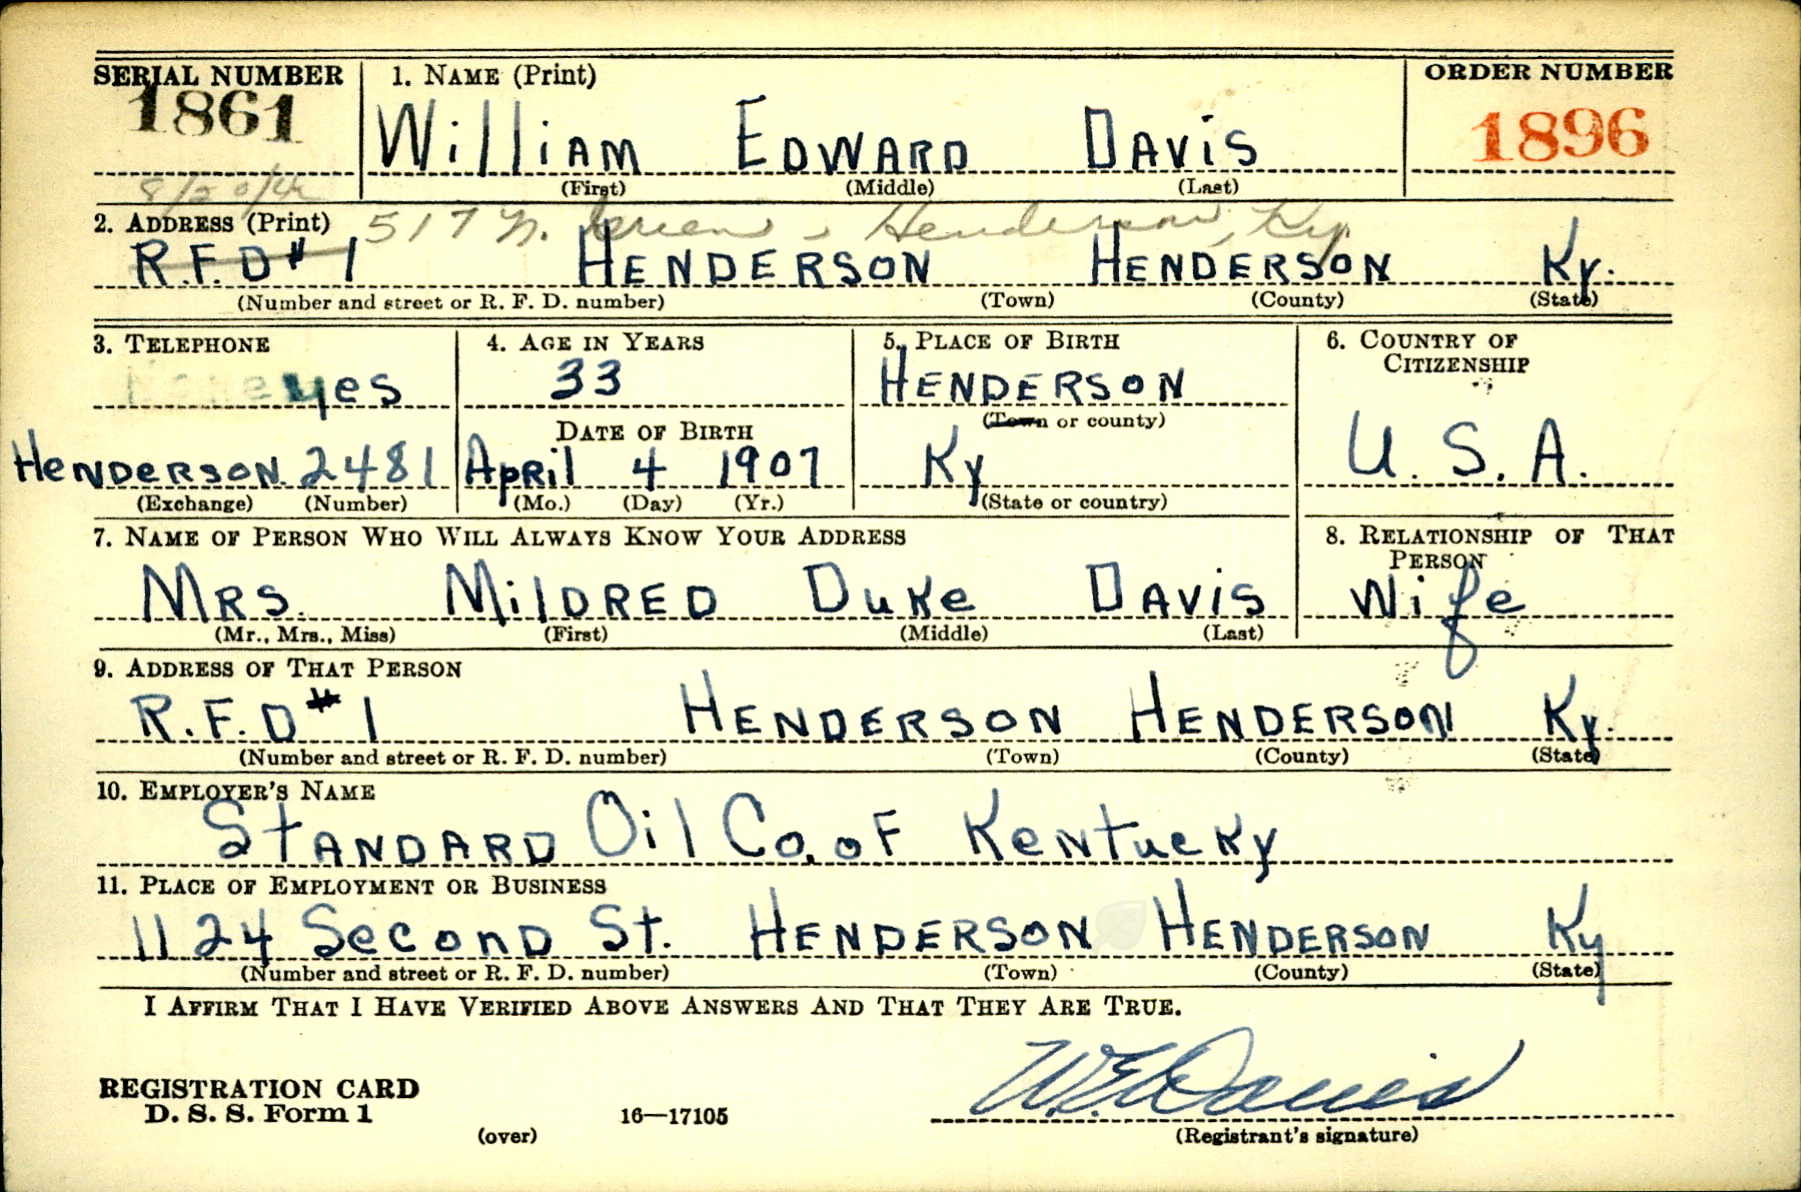 SERIAL NUMBER 1. NAME (Print) ORDER NUMBER
1861 William Edward Davis 1896
(First) (Middle) (Last)
8/20/42
2. ADDRESS (Print) 517 N. Green - Henderson, Ky.
R.F.D # 1 HENDERSON HENDERSON Ky.
(Number and street or R. F. D. number) (Town) (County) (State)
3. TELEPHONE 4. AGE IN YEARS 5. PLACE OF BIRTH 6. COUNTRY OF
CITIZENSHIP
None yes 33 HENDERSON
(Town or county)
DATE OF BIRTH
HENDERSON 2481 April 4 1907 Ky U. S. A.
(Exchange) (Number) (Mo.) (Day) (Yr.) (State or country)
7. NAME OF PERSON WHO WILL ALWAYS KNOW YOUR ADDRESS 8. RELATIONSHIP OF THAT
PERSON
MRS. MilDRED DuKe DAVIS Wife
(Mr., Mrs., Miss) (First) (Middle) (Last)
9. ADDRESS OF THAT PERSON
R.F.D # 1 HENDERSON HENDERSON Ky.
(Number and street or R. F. D. number) (Town) (County) (State)
10. EMPLOYER'S NAME
STANDARD Oil Co. oF KenTucKy
11. PLACE OF EMPLOYMENT OR BUSINESS
1124 Second St. HENDERSON HENDERSON Ky
(Number and street or R. F. D. number) (Town) (County) (State)
I AFFIRM THAT I HAVE VERIFIED ABOVE ANSWERS AND THAT THEY ARE TRUE.
REGISTRATION CARD W.E. Davis
D. S. S. Form 1 16—17105
(over) (Registrant's signature)